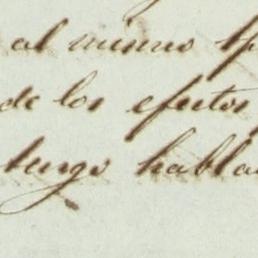 al mismo
de los efectos
tengo habla